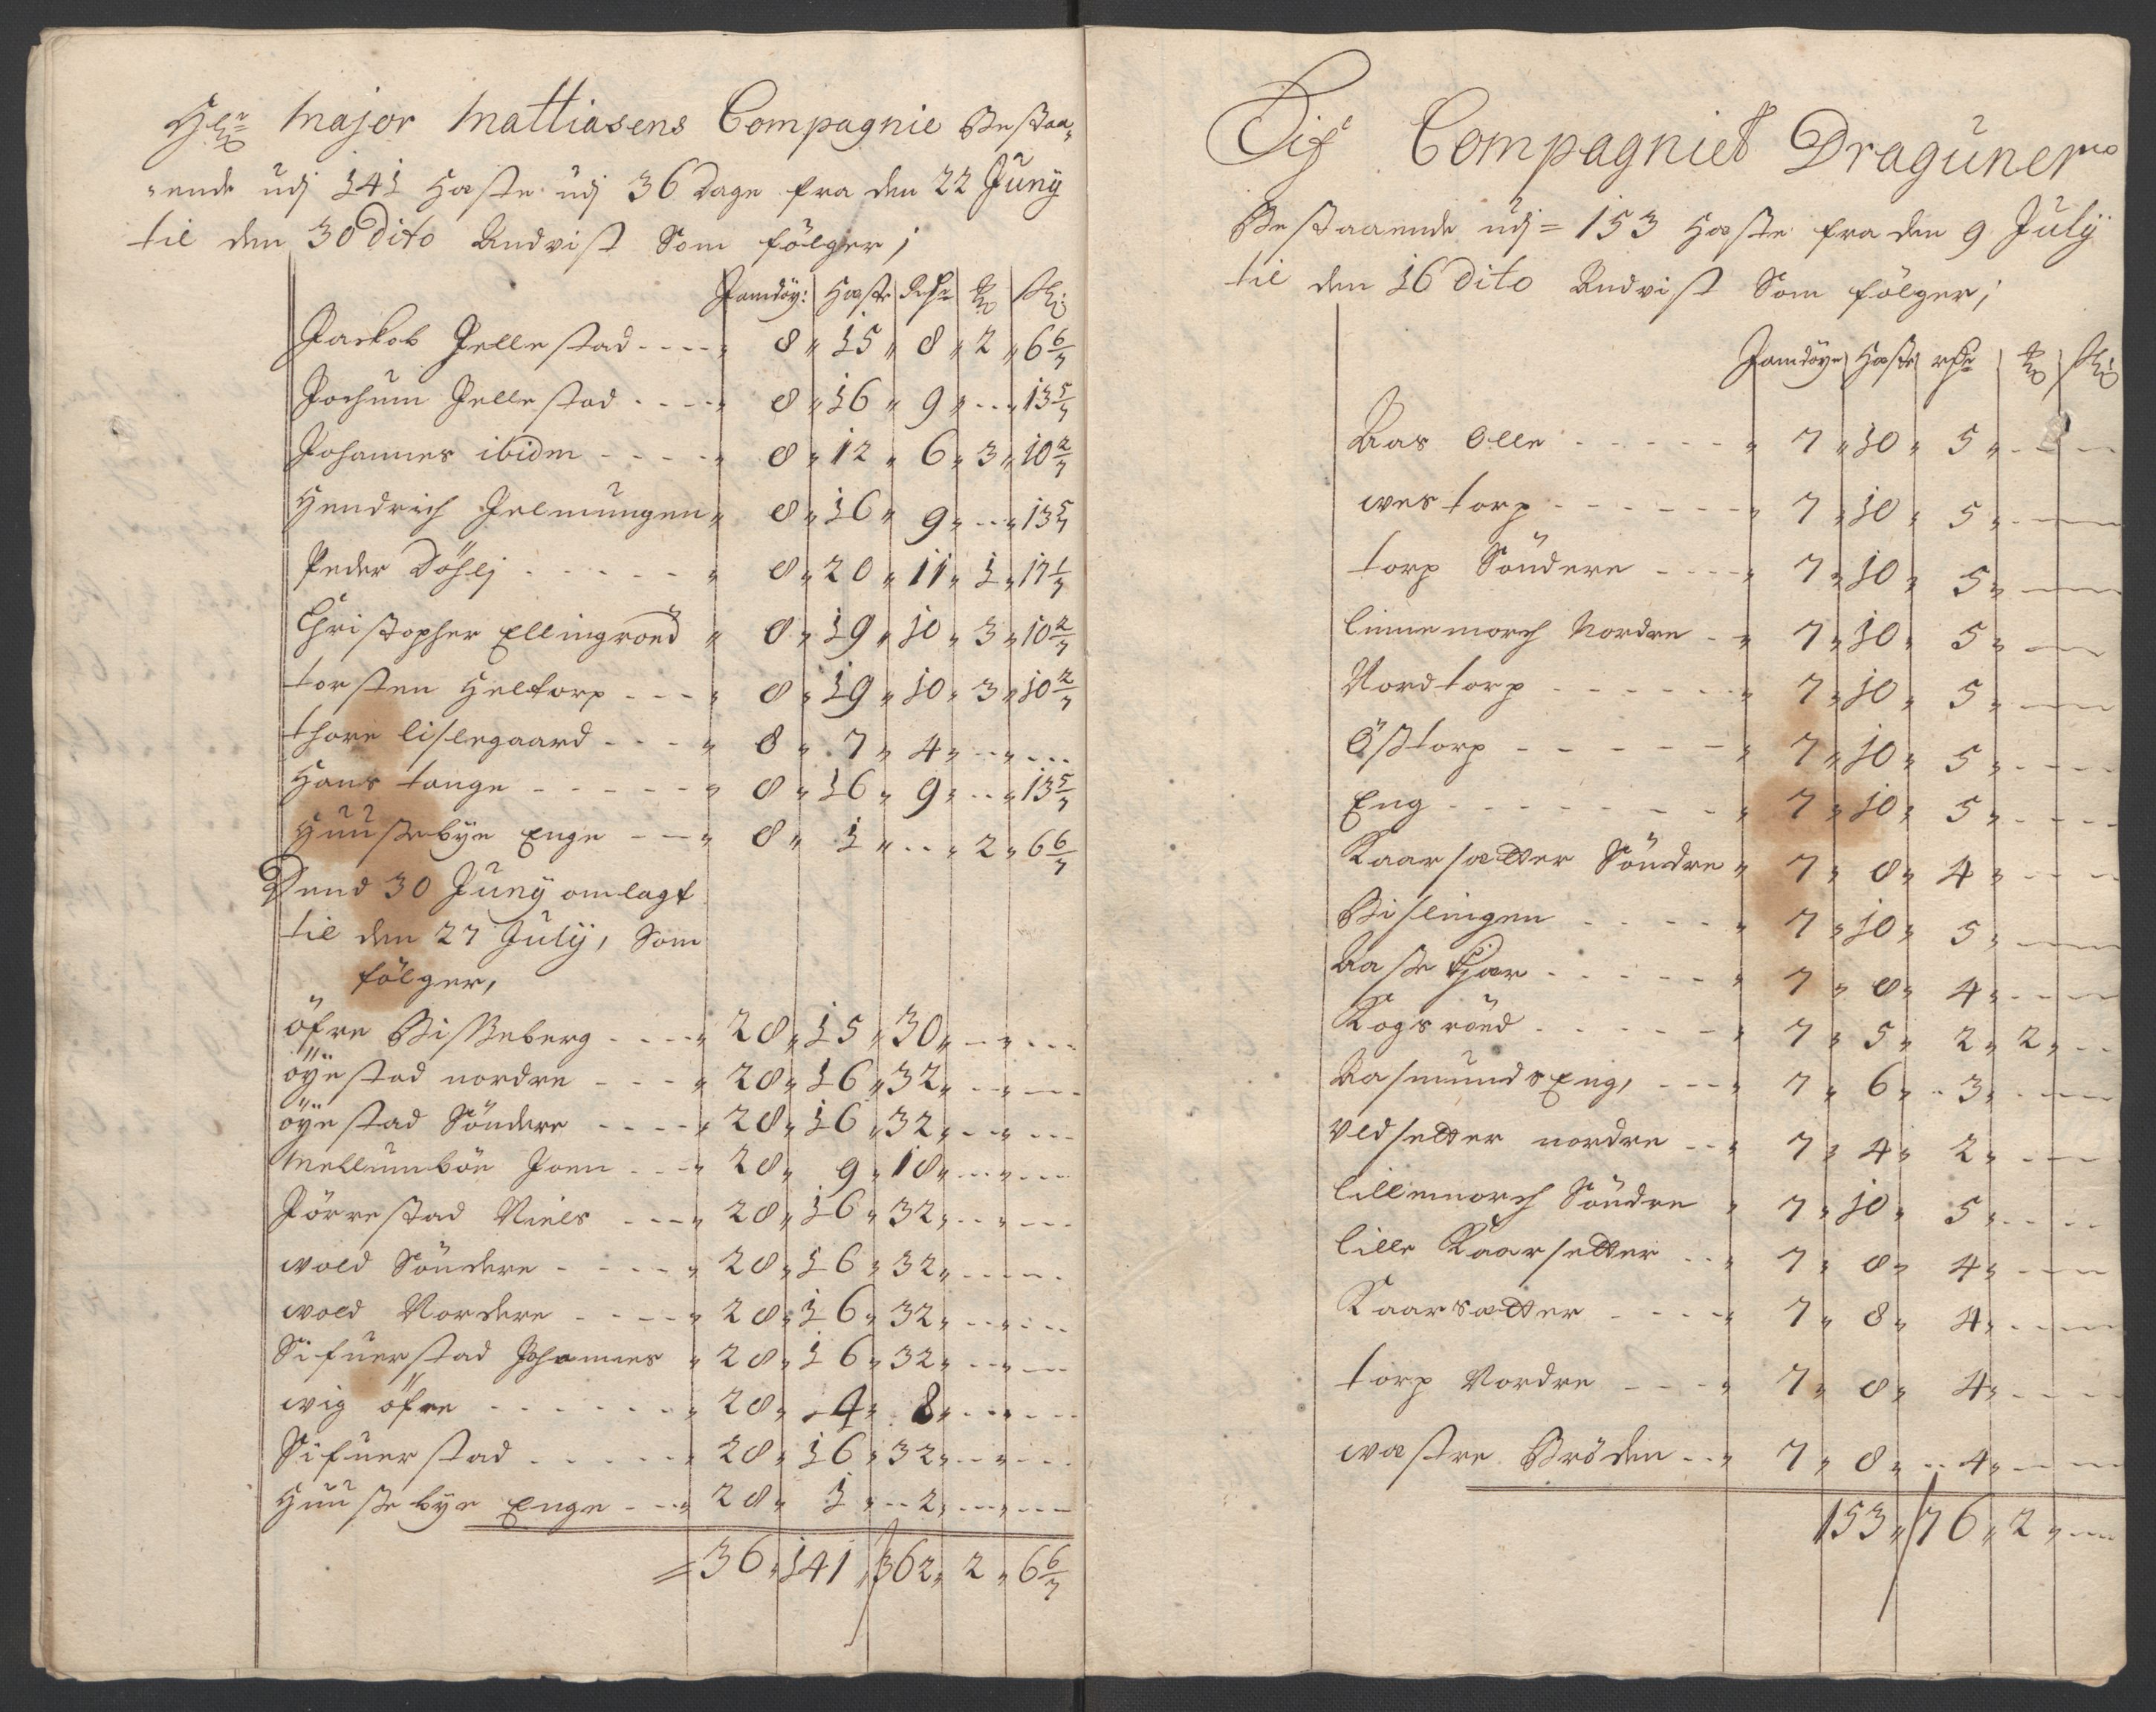 Hr Major Mattiasens Compagnie Bestaa-
ende udj 141 Heste udj 36 Dage fra den 22 Juny
til den 30 Dito Andvist Som fölger;
Heste Rdr
Jackob Jellestad " 8 " 15 " 8 " 2 " 6 6/7
Jochum Jellestad " 8 " 16 " 9 " " 13 5/7
Johannes ibidm " 8 " 12 " 6 " 3 " 10 2/7
Hendrich Jelmungen " 8 " 16 " 9 " " 13 5/7
Peder Döhlj " 8 " 20 " 11 " 1 " 17 1/7
Christopher Ellingröed " 8 " 19 " 10 " 3 " 10 2/7
torsten Heltorp " 8 " 19 " 10 " 3 " 10 2/7
thore lislegaard " 8 " 7 " 4 "
Hans tange " 8 " 16 " 9 " " 13 5/7
Huusebye Enge " 8 " 1 " " 2 " 6 6/7
Dend 30 Juny omlagt
til den 27 July, Som
fölger,
öfre Bisseberg " 28 " 15 " 30 "
öyestad nordre " 28 " 16 " 32 "
öyestad Söndere " 28 " 16 " 32 "
Mellumböe Joen " 28 " 9 " 18 "
Jörrestad Niels " 28 " 16 " 32 "
wold Söndere " 28 " 16 " 32 "
wold Nordere " 28 " 16 " 32 "
Sifuerstad Johannes " 28 " 16 " 32 "
wig öfre " 28 " 4 " 8 "
Sifuerstad " 28 " 16 " 32 "
Huusebye Enge " 28 " 1 " 2 "
= 36 " 141 " 362 " 2 " 6 6/7
Compagniet Draguner
Bestaaende udj = 153 Heste fra den 9 July
til den 16 Dito Andvist Som fölger;
Heste rdr
Aas Olle " 7 " 10 " 5 "
westorp " 7 " 10 " 5 "
torp Söndere " 7 " 10 " 5 "
linnemorch Nordre " 7 " 10 " 5 "
Nordtorp " 7 " 10 " 5 "
Östtorp " 7 " 10 " 5 "
Eng " 7 " 10 " 5 "
Kaarsætter Söndre " 7 " 8 " 4 "
Bislingen " 7 " 10 " 5 "
Aasekjær " 7 " 8 " 4 "
Kogsröed " 7 " 5 " 2 " 2 "
Aasmunds Eng, " 7 " 6 " 3 "
Vedsetter nordre " 7 " 4 " 2 "
lillemorch Söndre " 7 " 10 " 5 "
lille Kaarsetter " 7 " 8 " 4 "
Kaarsætter " 7 " 8 " 4 "
torp Nordre " 7 " 8 " 4 "
wæstre Bröden " 7 " 8 " 4 "
153 " 76 " 2 "